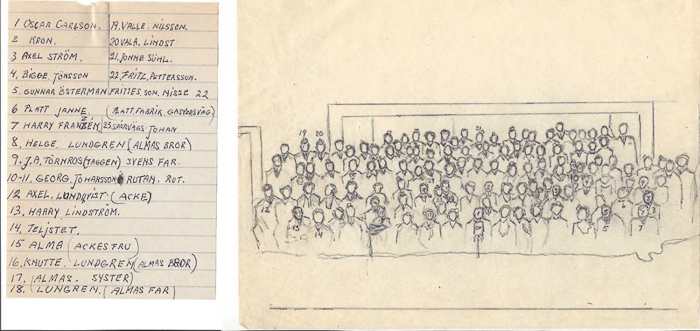 1 OSCAR CARLSON. 19. VALLE. NILSSON.
2 KRON. 20 VALA. LINDST
3 AXEL STRÖM. 21. JONNE SÜHL.
4, BIGGE. JÖNSSON 22. FRITZ. PETTERSSON.
5. GUNNAR ÖSTERMAN FRITTES. SON. NISSE 22
6 PLATT JANNE. (PLATT.FABRIK. GASVERSVÄG)
7 HARRY FRANZÉN 23 SPÅRVÄGS. JOHAN
8, HELGE. LUNDGREN (ALMAS BROR)
9, J.A. TÖRNROS (TAGGEN) SVENS FAR.
10-11, GEORG. JOHANSSON RUTAN. ROT.
12 AXEL. LUNDQVIST (ACKE)
13, HARRY LINDSTRÖM.
14, TELJSTET.
15 ALMA (ACKES FRU)
16, KNUTTE. LUNDGREN (ALMAS BROR)
17, (ALMAS. SYSTER)
18. LUNGREN. (ALMAS FAR)
19 20
12
13 14
5 6 7